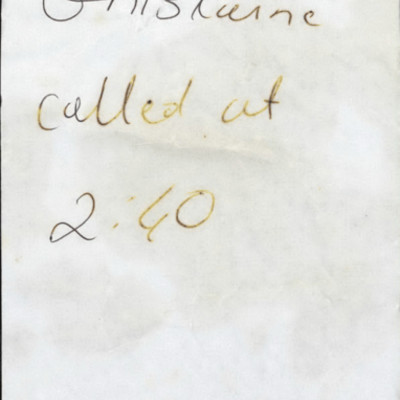 called at
2:40